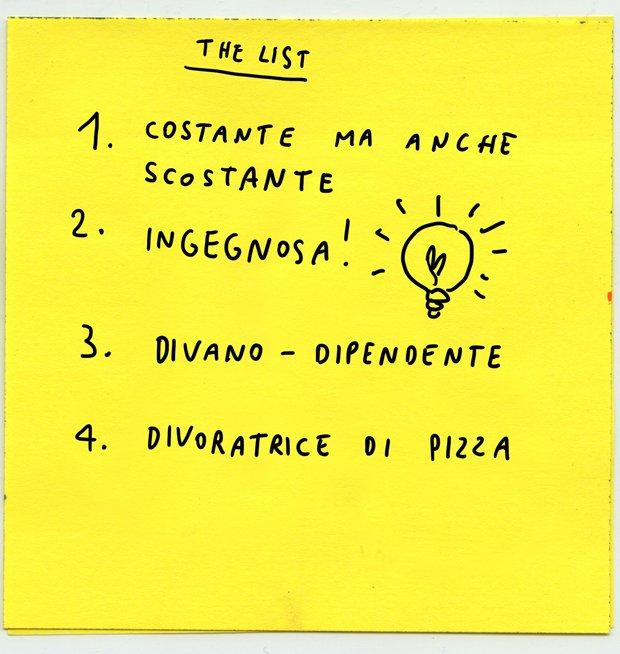 THE LIST
1. COSTANTE MA ANCHE
SCOSTANTE
2. INGEGNOSA!
3. DIVANO - DIPENDENTE
4. DIVORATRICE DI PIZZA